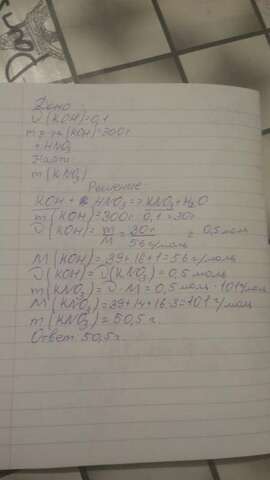 Дано:
ω(KOH)=0,1
m р-ра (KOH)=300г
+ HNO3
Найти
m(KNO3)
Решение
KOH + HNO3 => KNO3 + H2O
m(KOH)=300г·0,1=30г
υ(KOH)= m/M = 30г/56г/моль = 0,5моль
M(KOH)=39+16+1=56г/моль
υ(KOH)=υ(KNO3)=0,5 моль
m(KNO3)=υ·M=0,5 моль·101г/моль
M(KNO3)=39+14+16·3=101г/моль
m(KNO3)=50,5г.
Ответ: 50,5г.